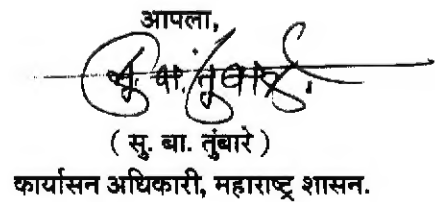 आपला,
सु. बा. तुंबारे
( सु. बा. तुंबारे )
कार्यासन अधिकारी, महाराष्ट्र शासन.